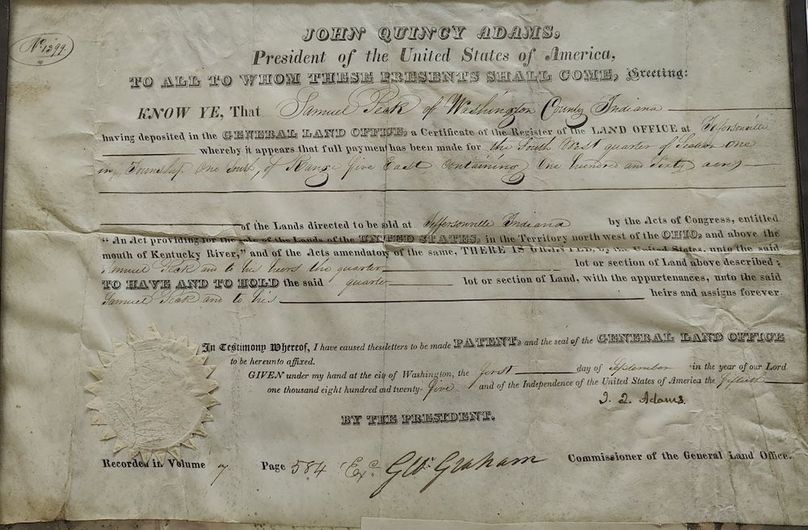 No. 1299
JOHN QUINCY ADAMS,
President of the United States of America,
TO ALL TO WHOM THESE PRESENTS SHALL COME, Greeting:
KNOW YE, That Samuel Peak of Washington County Indiana
having deposited in the GENERAL LAND OFFICE, a Certificate of the Register of the LAND OFFICE at Jeffersonville
whereby it appears that full payment has been made for the South West quarter of Section One
in Township One South, of Range five East Containing One hundred and Sixty acres
of the Lands directed to be sold at Jeffersonville Indiana by the Acts of Congress, entitled
"An Act providing for the sale of the Lands of the UNITED STATES, in the Territory north west of the OHIO, and above the
mouth of Kentucky River," and of the Acts amendatory of the same, THERE IS GRANTED, by the United States, unto the said
Samuel Peak and to his heirs the quarter lot or section of Land above described;
TO HAVE AND TO HOLD the said quarter lot or section of Land, with the appurtenances, unto the said
Samuel Peak and to his heirs and assigns forever
In Testimony Whereof, I have caused these letters to be made PATENT, and the seal of the GENERAL LAND OFFICE
to be hereunto affixed.
GIVEN under my hand at the city of Washington, the first day of September in the year of our Lord
one thousand eight hundred and twenty-five and of the Independence of the United States of America the fiftieth
J. Q. Adams
BY THE PRESIDENT.
Recorded in Volume 7 Page 584 Exd. Gw. Graham Commissioner of the General Land Office.